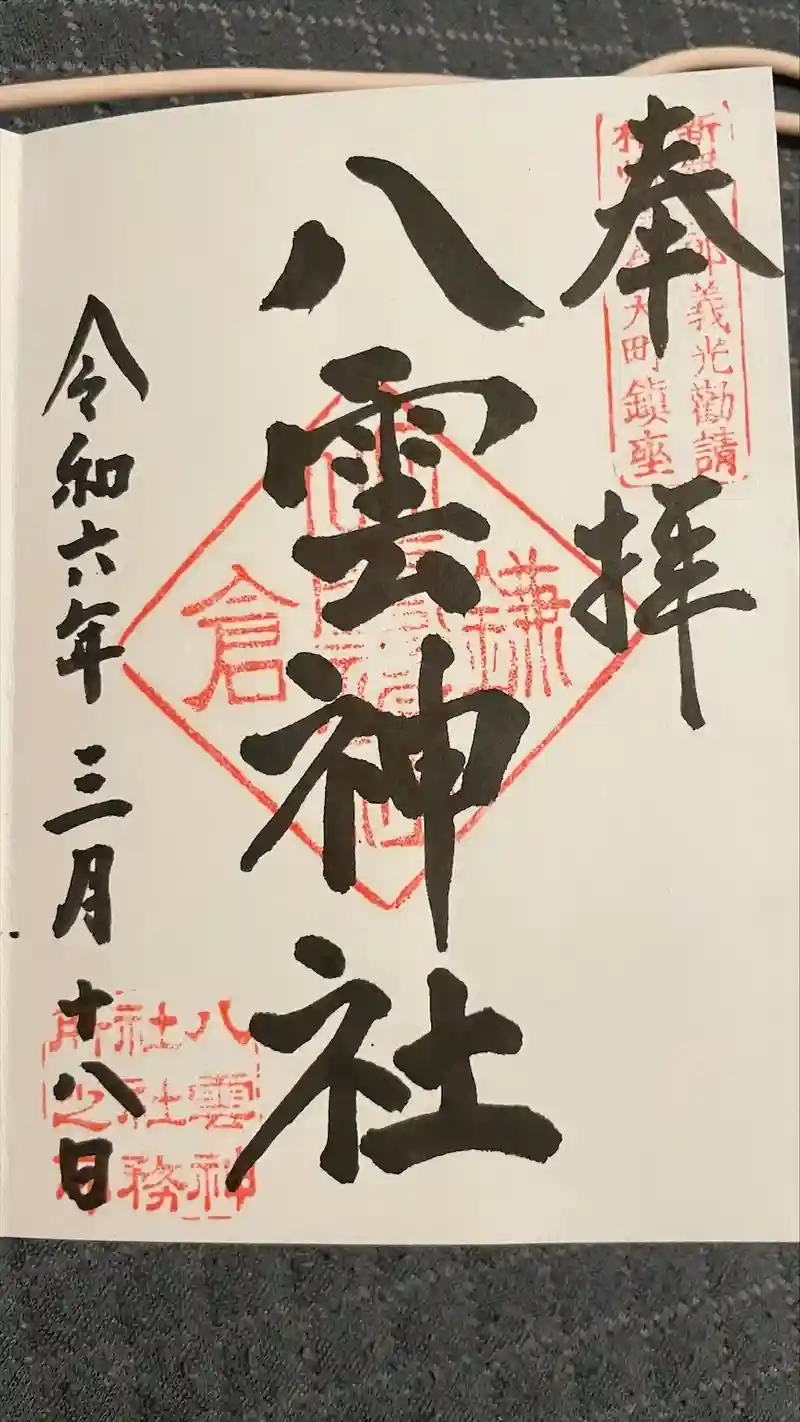 奉拝
郎義光勸請
大町鎮座
八雲神社
鎌
倉
令和六年三月十八日
八雲神
社社務
所之